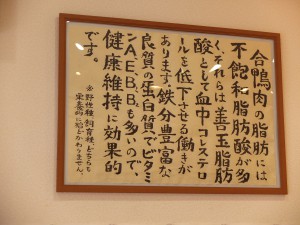 合鴨肉の脂肪には
不飽和脂肪酸が多
く、それらは善玉脂肪
酸として血中コレステロ
ールを低下させる働きが
あります。鉄分豊富な
良質の蛋白質でビタミ
ンA、E、B₁、B₂も多いので、
健康維持に効果的
です。
※野性種、飼育種、どちらも
栄養的に殆どかわりません。